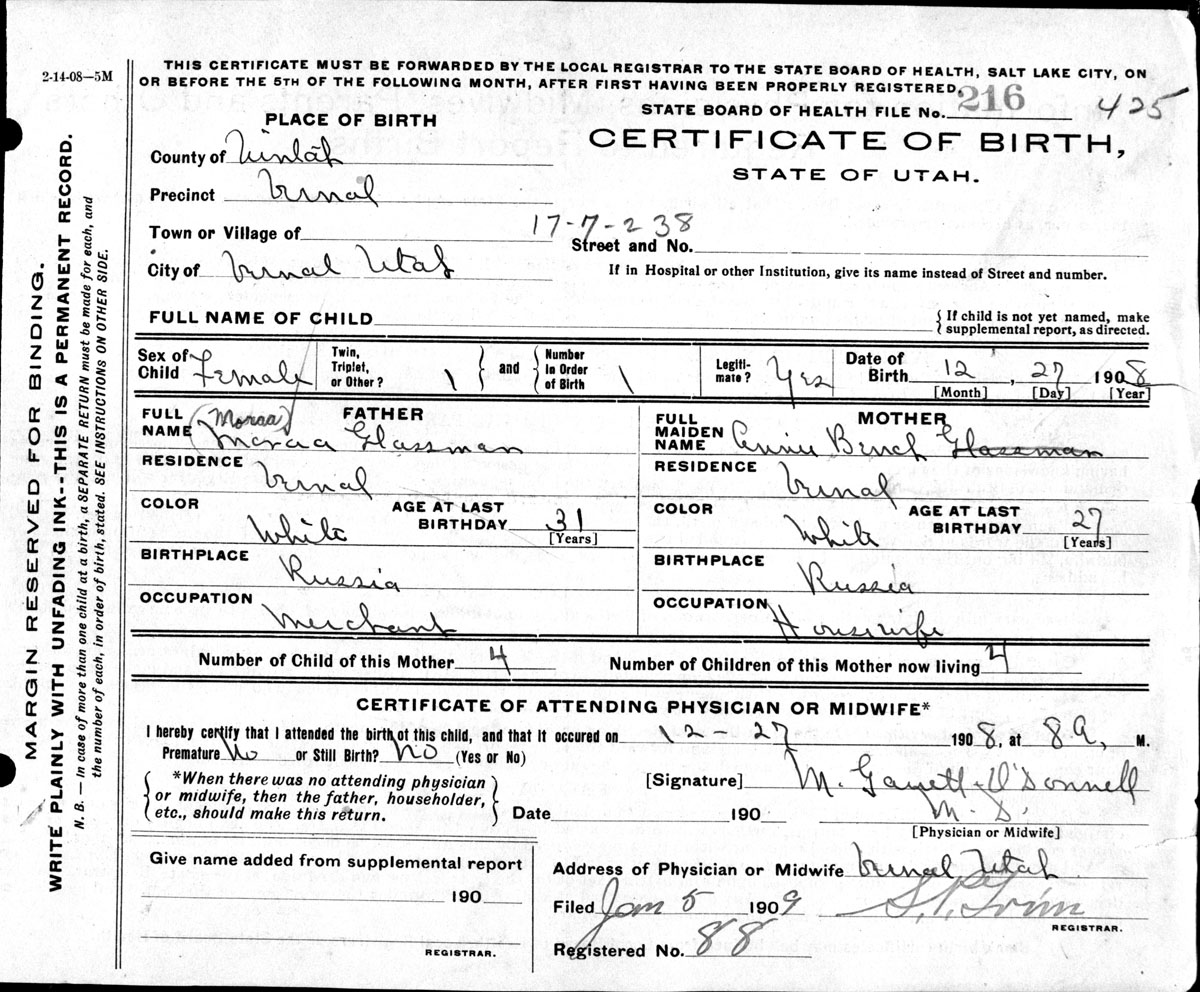 2-14-08—5M
THIS CERTIFICATE MUST BE FORWARDED BY THE LOCAL REGISTRAR TO THE STATE BOARD OF HEALTH, SALT LAKE CITY, ON
OR BEFORE THE 5TH OF THE FOLLOWING MONTH, AFTER FIRST HAVING BEEN PROPERLY REGISTERED.
STATE BOARD OF HEALTH FILE No. 216 425
PLACE OF BIRTH
CERTIFICATE OF BIRTH,
STATE OF UTAH.
County of Uintah
Precinct Vernal
Town or Village of 17-7-238
Street and No.
City of Vernal Utah
If in Hospital or other Institution, give its name instead of Street and number.
FULL NAME OF CHILD
{ If child is not yet named, make
supplemental report, as directed.
Sex of Child Female
Twin, Triplet, or Other? 1 } and { Number In Order of Birth 1
Legiti-mate? Yes
Date of Birth 12, 27 1908
[Month] [Day] [Year]
FATHER
FULL NAME (Moraa) Moraa Glassman
RESIDENCE Vernal
COLOR White
AGE AT LAST BIRTHDAY 31 [Years]
BIRTHPLACE Russia
OCCUPATION Merchant
MOTHER
FULL MAIDEN NAME Annie Glassman
RESIDENCE Vernal
COLOR White
AGE AT LAST BIRTHDAY 27 [Years]
BIRTHPLACE Russia
OCCUPATION Housewife
Number of Child of this Mother 4 Number of Children of this Mother now living 4
CERTIFICATE OF ATTENDING PHYSICIAN OR MIDWIFE*
I hereby certify that I attended the birth of this child, and that it occured on 12-27 1908, at 8 a, M.
Premature No or Still Birth? No (Yes or No)
{ *When there was no attending physician
or midwife, then the father, householder,
etc., should make this return. }
[Signature] M. Garrett O'Donnell
M.D.
Date 190
[Physician or Midwife]
Give name added from supplemental report
190
REGISTRAR.
Address of Physician or Midwife Vernal Utah
Filed Jan 5 1909
REGISTRAR.
Registered No. 88
MARGIN RESERVED FOR BINDING.
WRITE PLAINLY WITH UNFADING INK--THIS IS A PERMANENT RECORD.
N. B. — In case of more than one child at a birth, a SEPARATE RETURN must be made for each, and
the number of each, in order of birth, stated. SEE INSTRUCTIONS ON OTHER SIDE.